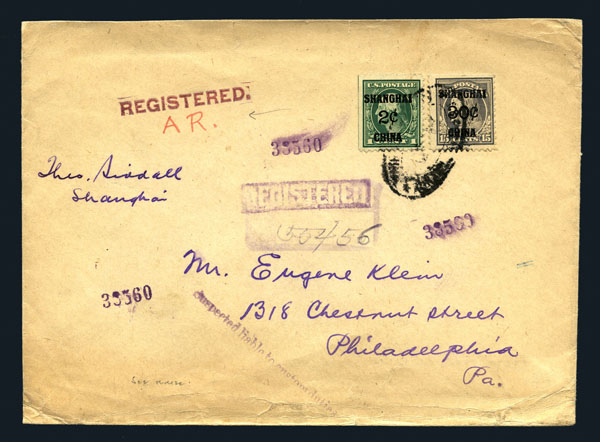 REGISTERED.
A R.
U.S. POSTAGE
SHANGHAI
2¢
CHINA
POST
SHANGHAI
30¢
CHINA
15 CENTS 15
33560
Theo. Siddall
Shanghai
REGISTERED
50456
33560
33560
Mr. Eugene Klein
1318 Chestnut Street
Philadelphia
Pa.
Suspected liable to customs duties